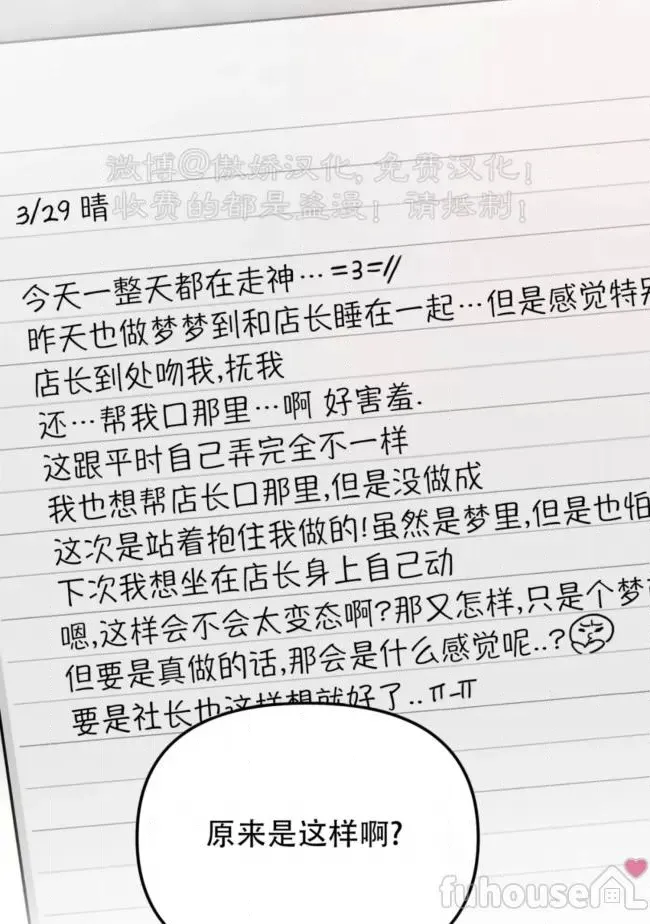 微博@傲娇汉化, 免费汉化!
收费的都是盗漫! 请抵制!
3/29 晴
今天一整天都在走神…=3=//
昨天也做梦梦到和店长睡在一起…但是感觉特别
店长到处吻我,抚我
还…帮我口那里…啊 好害羞.
这跟平时自己弄完全不一样
我也想帮店长口那里,但是没做成
这次是站着抱住我做的!虽然是梦里,但是也怕
下次我想坐在店长身上自己动
嗯,这样会不会太变态啊?那又怎样,只是个梦
但要是真做的话,那会是什么感觉呢..?
要是社长也这样想就好了..ㅠ-ㅠ
原来是这样啊?
fuhouse